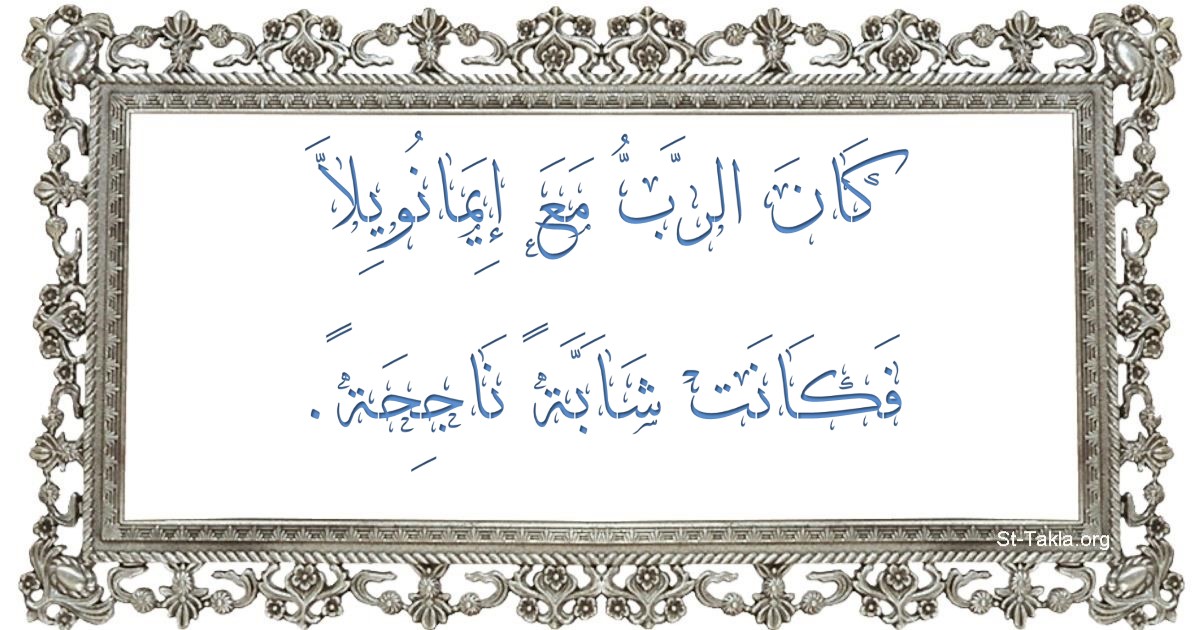 كَانَ الرَّبُّ مَعَ إِيَمَانُويِلاَّ
فَكَانَت شَابَّةً نَاجِحَةً.
St-Takla.org